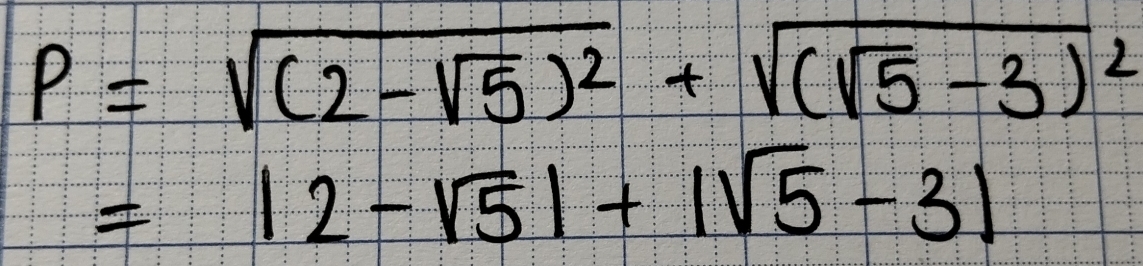 P = √((2 - √5)²) + √((√5 - 3)²)
= |2 - √5| + |√5 - 3|